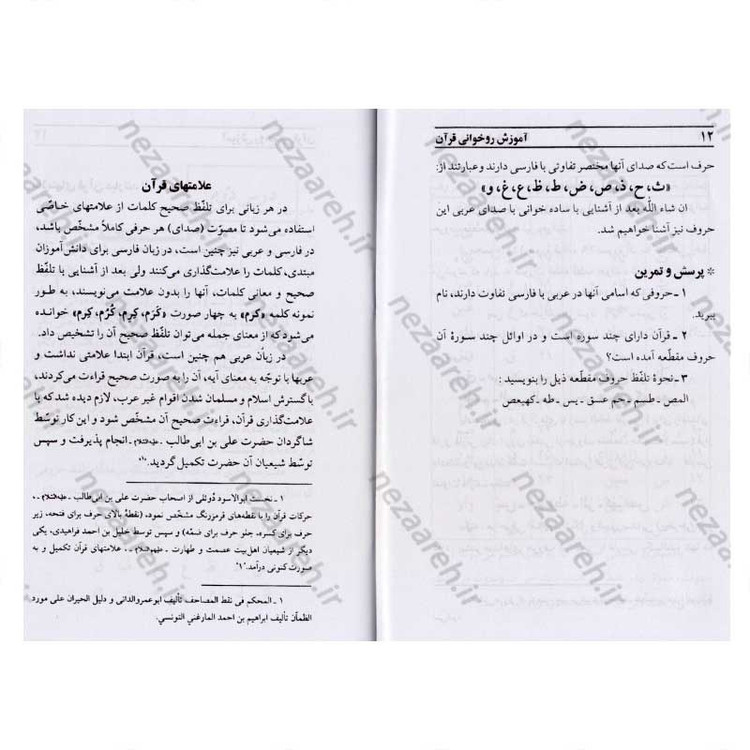 ۱۲
آموزش روخوانی قرآن
حرف است که صدای آنها مختصر تفاوتی با فارسی دارند و عبارتند از:
«ث، ح، ذ، ص، ض، ط، ظ، ع، غ، و»
ان شاء اللّه بعد از آشنایی با ساده خوانی با صدای عربی این
حروف نیز آشنا خواهیم شد.
* پرسش و تمرین
۱ ـ حروفی که اسامی آنها در عربی با فارسی تفاوت دارند، نام
ببرید.
۲ ـ قرآن دارای چند سوره است و در اوائل چند سورهٔ آن
حروف مقطّعه آمده است؟
۳ ـ نحوهٔ تلفّظ حروف مقطعه ذیل را بنویسید :
المص ـ طسم ـ حم عسق ـ یس ـ طه ـ کهیعص
علامتهای قرآن
در هر زبانی برای تلفّظ صحیح کلمات از علامتهای خاصّی
استفاده می‌شود تا مصوّت (صدای) هر حرفی کاملاً مشخّص باشد،
در فارسی و عربی نیز چنین است، در زبان فارسی برای دانش‌آموزان
مبتدی، کلمات را علامت‌گذاری می‌کنند ولی بعد از آشنایی با تلفّظ
صحیح و معانی کلمات، آنها را بدون علامت می‌نویسند، به طور
نمونه کلمه «کرم» به چهار صورت «کَرَم، کِرِم، کُرُم، کِرم» خوانده
می‌شود که از معنای جمله می‌توان تلفّظ صحیح آن را تشخیص داد.
در زبان عربی هم چنین است، قرآن ابتدا علامتی نداشت و
عربها با توجّه به معنای آیه، آن را به صورت صحیح قراءت می‌کردند،
با گسترش اسلام و مسلمان شدن اقوام غیر عرب، لازم دیده شد که با
علامت‌گذاری قرآن، قراءت صحیح آن مشخّص شود و این کار توسّط
شاگردان حضرت علی بن ابی‌طالب ـ علیه‌السلام ـ انجام پذیرفت و سپس
توسّط شیعیان آن حضرت تکمیل گردید.
۱ ـ نخست ابوالاسود دوئلی از اصحاب حضرت علی بن ابی‌طالب ـ علیه‌السلام ـ ،
حرکات قرآن را با نقطه‌های قرمزرنگ مشخّص نمود، (نقطهٔ بالای حرف برای فتحه، زیر
حرف برای کسره، جلو حرف برای ضمّه) و سپس توسط خلیل بن احمد فراهیدی، یکی
دیگر از شیعیان اهل‌بیت عصمت و طهارت ـ علیهم‌السلام ـ ، علامتهای قرآن تکمیل و به
صورت کنونی درآمد.
۱ ـ المحکم فی نقط المصاحف تألیف ابوعمروالدانی و دلیل الحیران علی مورد
الظمآن تألیف ابراهیم بن احمد المارغنی التونسی.
nezaareh.ir
nezaareh.ir
nezaareh.ir
nezaareh.ir
nezaareh.ir
nezaareh.ir
nezaareh.ir
nezaareh.ir